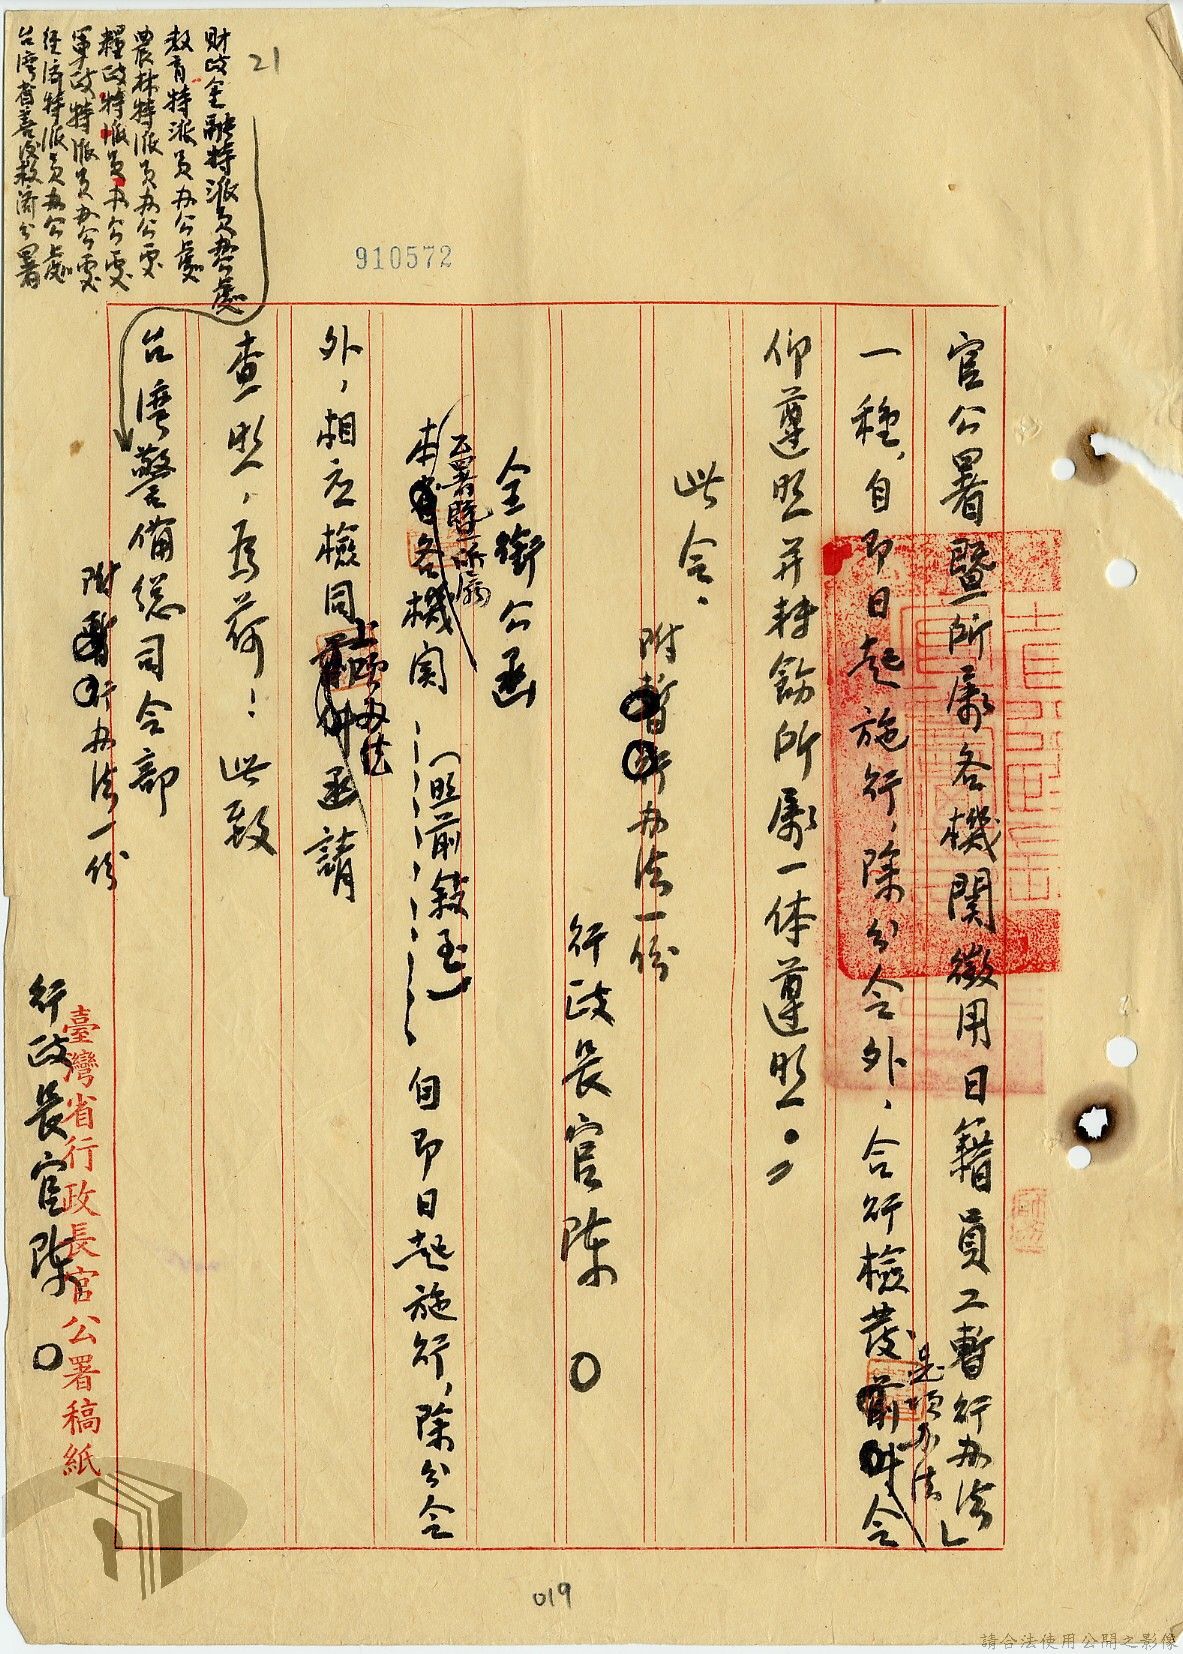 官公署暨所屬各機関徵用日籍員工暫行办法」
一種，自即日起施行，除分令外，合行檢發是項办法令
仰遵照并轉飭所屬一体遵照。〃
此令。
附暫行办法一份
行政長官陳〇
全銜公函
本署暨所屬各機関……（照前敍至）……自即日起施行，除分令
外，相应檢同上項办法函請
查照，為荷！此致
台灣警備総司令部
附暫行办法一份
行政長官陳〇
財政金融特派員办公處
教育特派員办公處
農林特派員办公处
糧政特派員办公处
軍政特派員办公处
經濟特派員办公處
台灣省善後救济分署
21
910572
臺灣省行政長官公署稿紙
019
請合法使用公開之影像